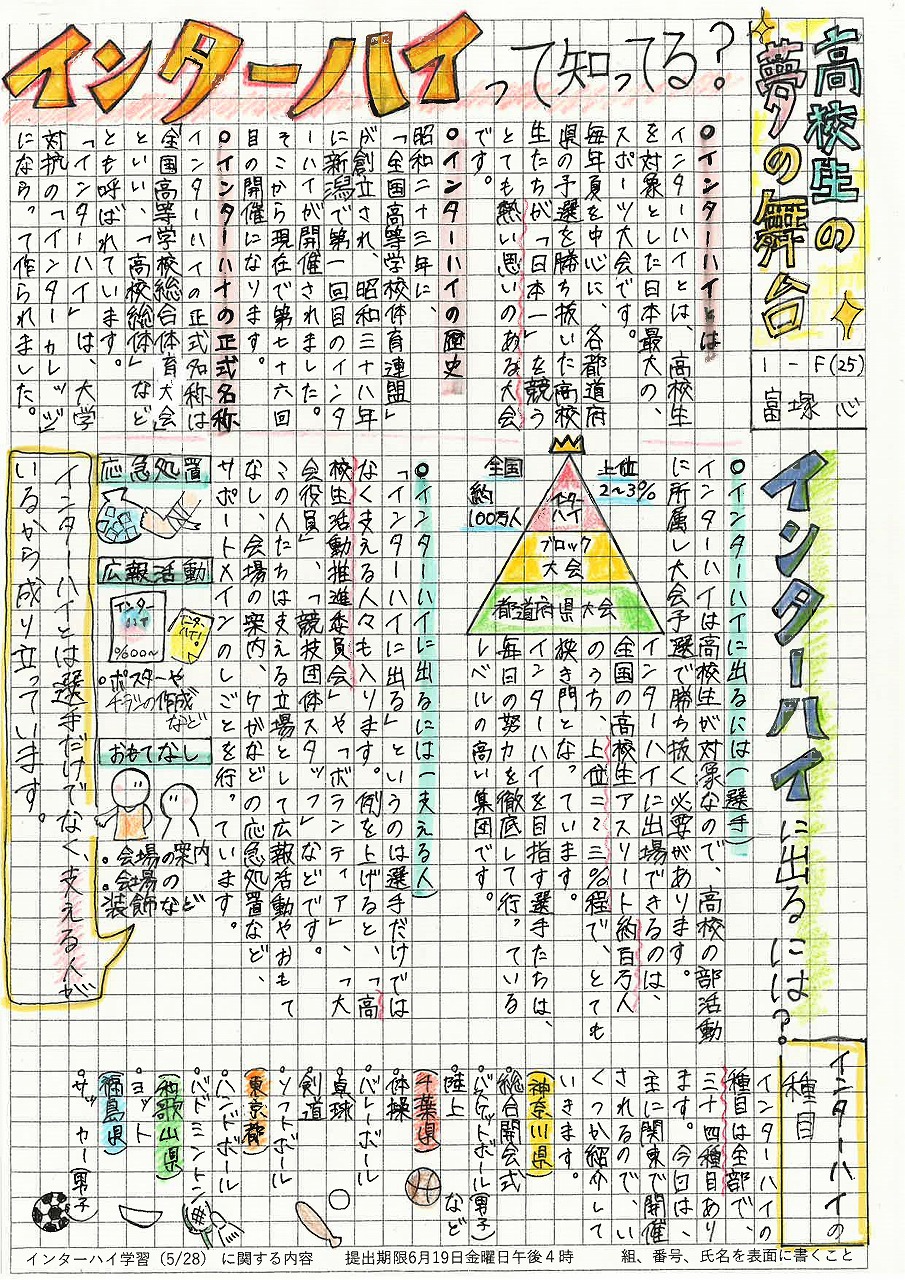 高校生の
夢の舞台
1-F(25)
富塚 心
インターハイって知ってる?
○インターハイとは
インターハイとは、高校生
を対象とした日本最大の、
スポーツ大会です。
毎年夏を中心に、各都道府
県の予選を勝ち抜いた高校
生たちが「日本一」を競う
とても熱い思いのある大会
です。
○インターハイの歴史
昭和二十三年に、
「全国高等学校体育連盟」
が創立され、昭和三十八年
に新潟で第一回目のインタ
ーハイが開催されました。
そこから現在で第七十六回
目の開催になります。
○インターハイの正式名称
インターハイの正式名称は
全国高等学校総合体育大会」
といい、「高校総体」など
とも呼ばれています。
「インターハイ」は、大学
対抗の「インターカレッジ」
にならって作られました。
インターハイに出るには?
○インターハイに出るには-選手)
インターハイは高校生が対象なので、高校の部活動
に所属し大会予選で勝ち抜く必要があります。
インターハイに出場できるのは、
全国の高校生アスリート約百万人
のうち、上位二~三%程で、とても
狭き門となっています。
インターハイを目指す選手たちは、
毎日の努力を徹底して行っている
レベルの高い集団です。
上位
2~3%
全国
約
100万人
インター
ハイ
ブロック
大会
都道府県大会
○インターハイに出るには-支える人)
「インターハイに出る」というのは選手だけでは
なく支える人々も入ります。例を上げると、「高
校生活動推進委員会」や「ボランティア」、「大
会役員」、「競技団体スタッフ」などです。
この人たちは支える立場として広報活動やおもて
なし、会場の案内、ケガなどの応急処置など、
サポートメインのしごとを行っています。
応急処置
広報活動
インター
ハイ
%00~
インター
ハイ!
・ポスターや
チラシの作成
など
おもてなし
・会場の案内
・会場の
装飾など
インターハイとは選手だけでなく、支える人が
いるから成り立っています。
インターハイの
種目
インターハイの
種目は全部で、
三十四種目あり
ます。今回は、
主に関東で開催
されるので、い
くつか紹介して
いきます。
神奈川県
総合開会式
・バスケットボール(男子)
・陸上 など
千葉県
・体操
・バレーボール
・卓球
・剣道
・ソフトボール
東京都
・ハンドボール
・バドミントン
和歌山県
・ヨット
福島県
・サッカー(男子)
インターハイ学習(5/28)に関する内容 提出期限6月19日金曜日午後4時 組、番号、氏名を表面に書くこと